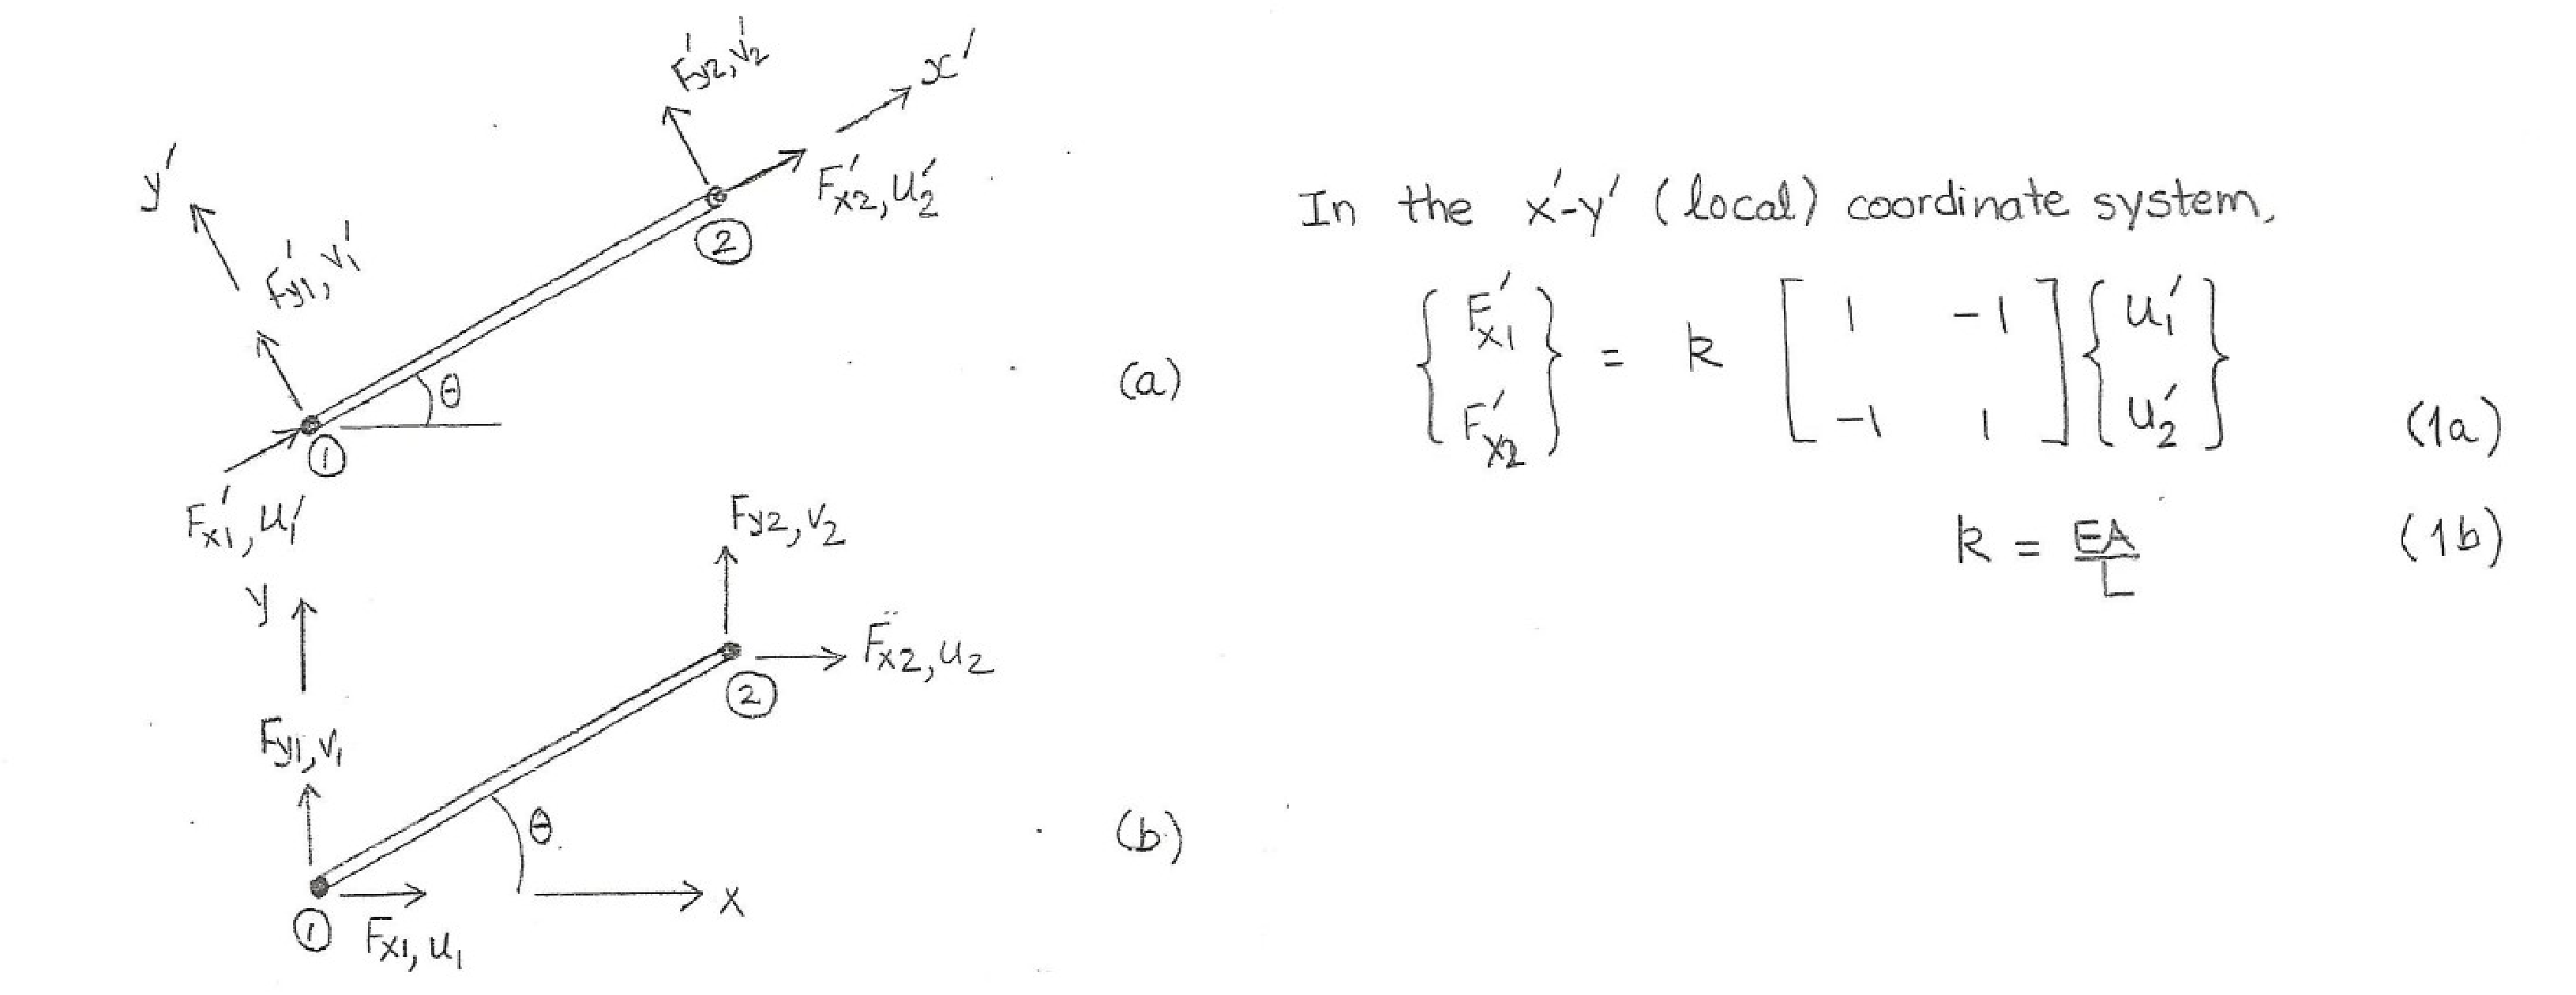 F'y2, v'2
x'
y'
F'x2, u'2
②
F'y1, v'1
θ
(a)
①
F'x1, u'1
Fy2, v2
y
Fx2, u2
②
Fy1, v1
θ
(b)
x
①
Fx1, u1
In the x'-y' (local) coordinate system,
{ F'x1 } = k [ 1 -1 ] { u'1 }
{ F'x2 } [ -1 1 ] { u'2 } (1a)
k = EA/L (1b)